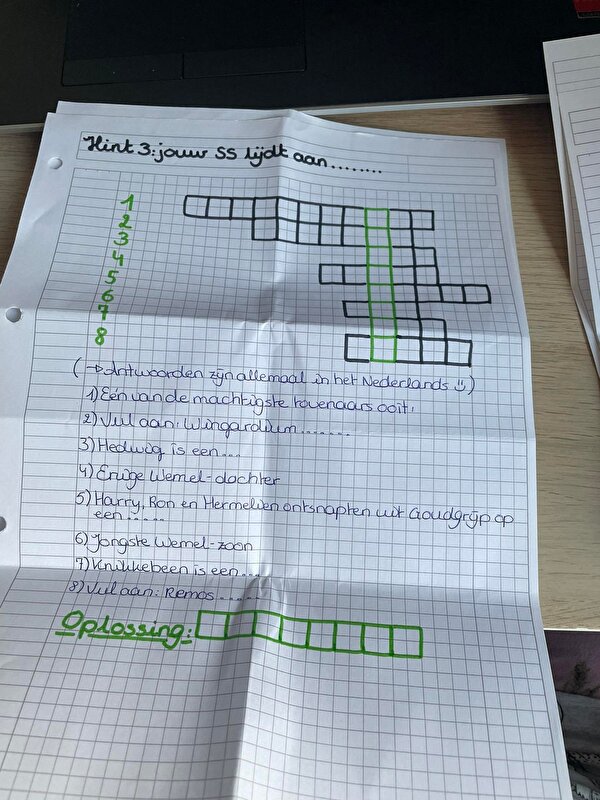 Hint 3: jouw SS lijdt aan........
1
2
3
4
5
6
7
8
(→ Antwoorden zijn allemaal in het Nederlands ☺)
1) Eén van de machtigste tovenaars ooit:
2) Vul aan: Wingardium.......
3) Hedwig is een...
4) Enige Wemel-dochter
5) Harry, Ron en Hermelien ontsnapten uit Goudgrijp op
een.....
6) Jongste Wemel-zoon
7) Knikkebeen is een...
8) Vul aan: Remos......
Oplossing: